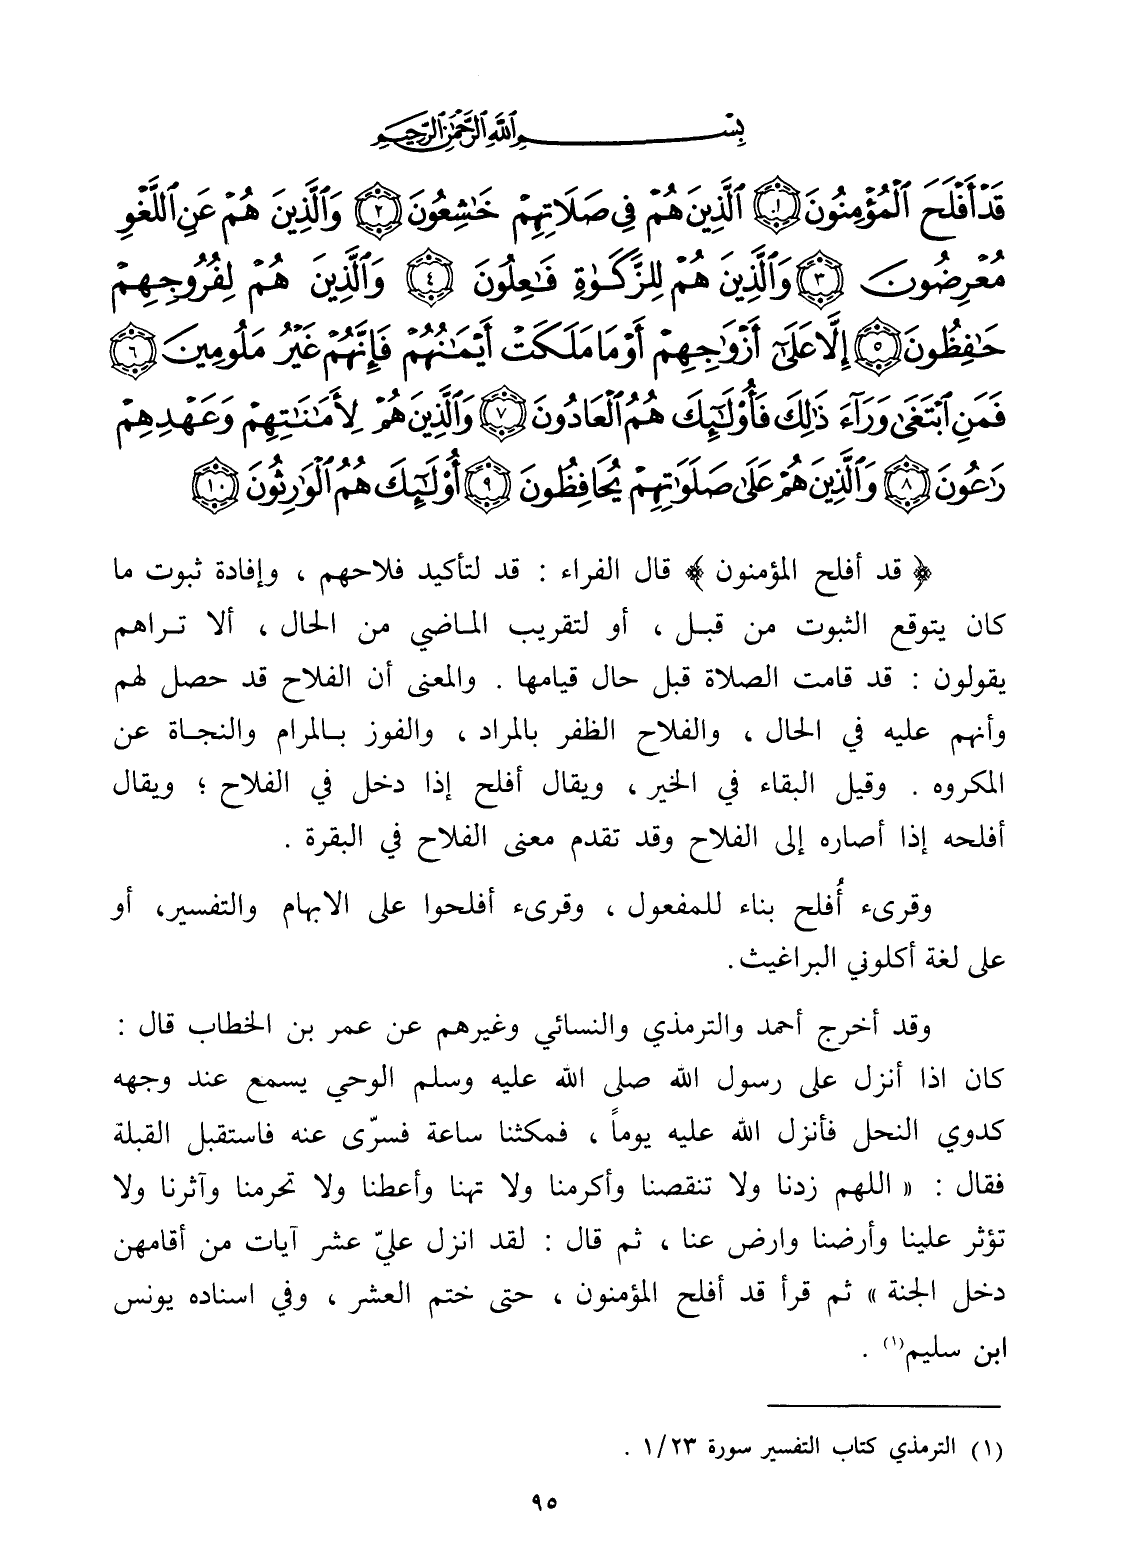 بِسْمِ ٱللَّهِ ٱلرَّحْمَٰنِ ٱلرَّحِيمِ
قَدْ أَفْلَحَ ٱلْمُؤْمِنُونَ ١ ٱلَّذِينَ هُمْ فِي صَلَاتِهِمْ خَٰشِعُونَ ٢ وَٱلَّذِينَ هُمْ عَنِ ٱللَّغْوِ
مُعْرِضُونَ ٣ وَٱلَّذِينَ هُمْ لِلزَّكَوٰةِ فَٰعِلُونَ ٤ وَٱلَّذِينَ هُمْ لِفُرُوجِهِمْ
حَٰفِظُونَ ٥ إِلَّا عَلَىٰٓ أَزْوَٰجِهِمْ أَوْ مَا مَلَكَتْ أَيْمَٰنُهُمْ فَإِنَّهُمْ غَيْرُ مَلُومِينَ ٦
فَمَنِ ٱبْتَغَىٰ وَرَآءَ ذَٰلِكَ فَأُوْلَٰٓئِكَ هُمُ ٱلْعَادُونَ ٧ وَٱلَّذِينَ هُمْ لِأَمَٰنَٰتِهِمْ وَعَهْدِهِمْ
رَٰعُونَ ٨ وَٱلَّذِينَ هُمْ عَلَىٰ صَلَوَٰتِهِمْ يُحَافِظُونَ ٩ أُوْلَٰٓئِكَ هُمُ ٱلْوَٰرِثُونَ ١٠
﴿ قد أفلح المؤمنون ﴾ قال الفراء : قد لتأكيد فلاحهم ، وإفادة ثبوت ما
كان يتوقع الثبوت من قبل ، أو لتقريب الماضي من الحال ، ألا تراهم
يقولون : قد قامت الصلاة قبل حال قيامها . والمعنى أن الفلاح قد حصل لهم
وأنهم عليه في الحال ، والفلاح الظفر بالمراد ، والفوز بالمرام والنجاة عن
المكروه . وقيل البقاء في الخير ، ويقال أفلح إذا دخل في الفلاح ؛ ويقال
أفلحه إذا أصاره إلى الفلاح وقد تقدم معنى الفلاح في البقرة .
وقرىء أُفلح بناء للمفعول ، وقرىء أفلحوا على الابهام والتفسير، أو
على لغة أكلوني البراغيث.
وقد أخرج أحمد والترمذي والنسائي وغيرهم عن عمر بن الخطاب قال :
كان اذا أنزل على رسول الله صلى الله عليه وسلم الوحي يسمع عند وجهه
كدوي النحل فأنزل الله عليه يوماً ، فمكثنا ساعة فسرّى عنه فاستقبل القبلة
فقال : « اللهم زدنا ولا تنقصنا وأكرمنا ولا تهنا وأعطنا ولا تحرمنا وآثرنا ولا
تؤثر علينا وأرضنا وارض عنا ، ثم قال : لقد انزل عليّ عشر آيات من أقامهن
دخل الجنة » ثم قرأ قد أفلح المؤمنون ، حتى ختم العشر ، وفي اسناده يونس
ابن سليم(١) .
(١) الترمذي كتاب التفسير سورة ٢٣/١ .
٩٥